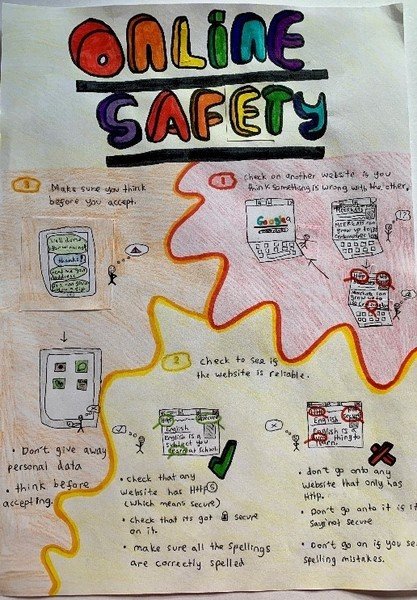 ONLINE
SAFETY
3 Make sure you think
before you accept.
1 check on another website is you
think something is wrong with the other.
Google
thanks!
2 check to see if
the website is reliable.
English
English is a
subject you
learn at school.
English
English is
thing to
learn.
• Don't give away
personal data
• think before
accepting.
• check that any
website has HttpS
(which means secure)
• check that its got secure
on it.
• make sure all the spellings
are correctly spelled
• don't go onto any
website that only has
HTTP.
• Don't go onto it if it
says not secure
• Don't go on if you see
spelling mistakes.